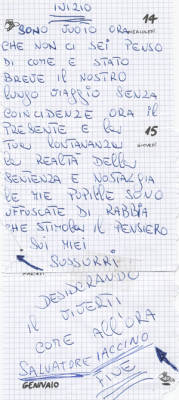 INIZIO
14
SONO VUOTO ORA
MERCOLEDÌ
CHE NON CI SEI PENSO
DI COME E STATO
BREVE IL NOSTRO
LUNGO VIAGGIO SENZA
COINCIDENZE ORA IL
PRESENTE E LA
15
TUA LONTANANZA
GIOVEDÌ
LA REALTÀ DELLA
SENTENZA E NOSTALGIA
LE MIE PUPILLE SONO
OFFUSCATE DI RABBIA
CHE STIMOLA IL PENSIERO
SUI MIEI
SUSSURRI
DESIDERANDO
IL VIVERTI
COME ALL'ORA
SALVATORE IACCINO
GENNAIO
FINE